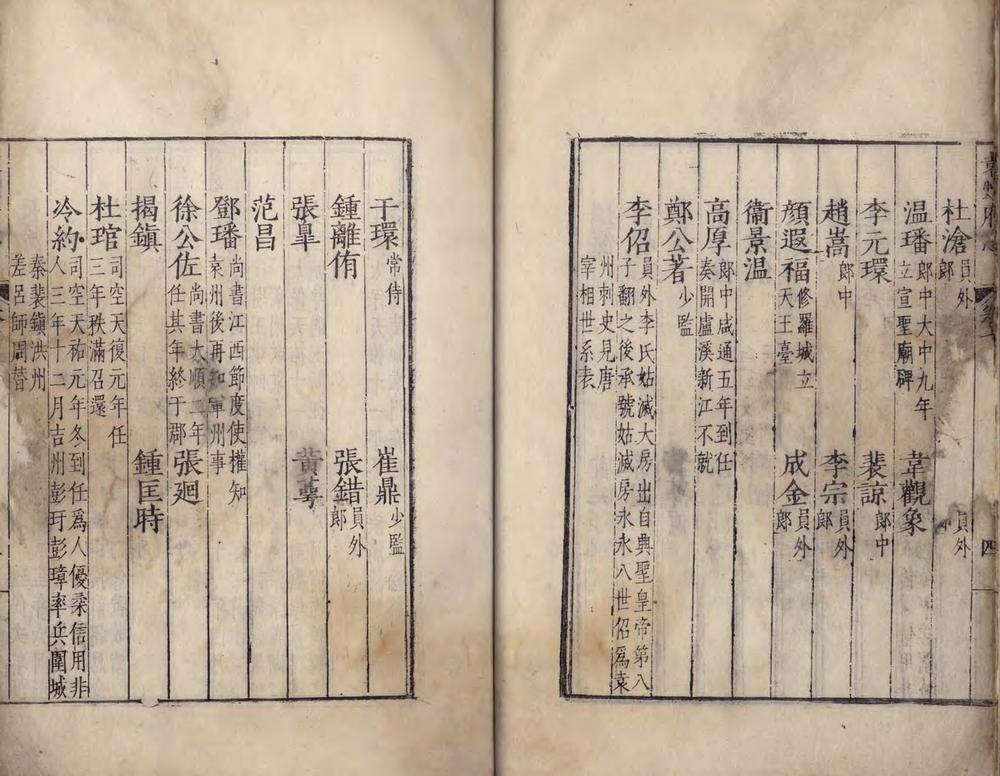 袁州府志
四
杜滄員外郎 員外
温璠郎中大中九年立宣聖廟碑 韋觀象
李元環 裴諒郎中
趙嵩郎中 李宗員外郎
顔遐福修羅城立天王臺 成金員外郎
衞景温
高厚郎中咸通五年到任奏開盧溪新江不就
鄭公著少監
李佋員外李氏姑滅大房出自興聖皇帝第八子翻之後承號姑滅房永永八世佋爲袁州刺史見唐宰相世系表
于環常侍 崔鼎少監
鍾離侑 張錯員外郎
張臯 黄蕚
范昌
鄧璠尚書江西節度使權知袁州後再知軍州事
徐公佐尚書大順二年任其年終于郡 張廻
揭鎮 鍾匡時
杜琯司空天復元年任三年秩滿召還
冷約司空天祐元年冬到任爲人優柔信用非人三年十二月吉州彭玗彭璋率兵圍城
秦裴鎮洪州差呂師周替